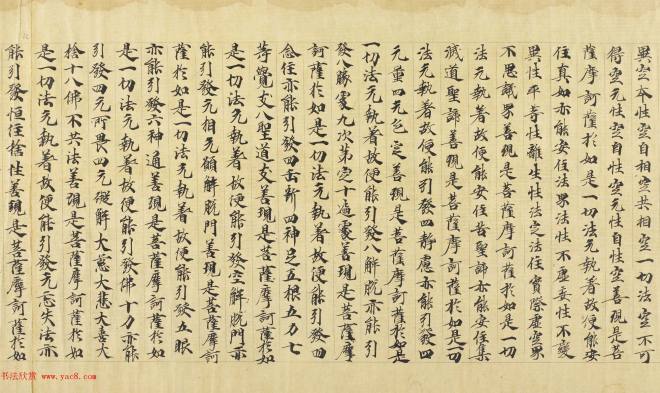 異空本性空自相空共相空一切法空不可
得空无性空自性空无性自性空善現是菩
薩摩訶薩於如是一切法无執著故便能安
住真如亦能安住法界法性不虛妄性不變
異性平等性離生性法定法住實際虛空界
不思議界善現是菩薩摩訶薩於如是一切
法无執著故便能安住苦聖諦亦能安住集
滅道聖諦善現是菩薩摩訶薩於如是一切
法无執著故便能引發四靜慮亦能引發四
无量四无色定善現是菩薩摩訶薩於如是
一切法无執著故便能引發八解脫亦能引
發八勝處九次第定十遍處善現是菩薩摩
訶薩於如是一切法无執著故便能引發四
念住亦能引發四正斷四神足五根五力七
等覺支八聖道支善現是菩薩摩訶薩於如
是一切法无執著故便能引發空解脫門亦
能引發无相无願解脫門善現是菩薩摩訶
薩於如是一切法无執著故便能引發五眼
亦能引發六神通善現是菩薩摩訶薩於如
是一切法无執著故便能引發佛十力亦能
引發四无所畏四无礙解大慈大悲大喜大
捨十八佛不共法善現是菩薩摩訶薩於如
是一切法无執著故便能引發无忘失法亦
能引發恒住捨性善現是菩薩摩訶薩於如
书法欣赏 www.yac8.com